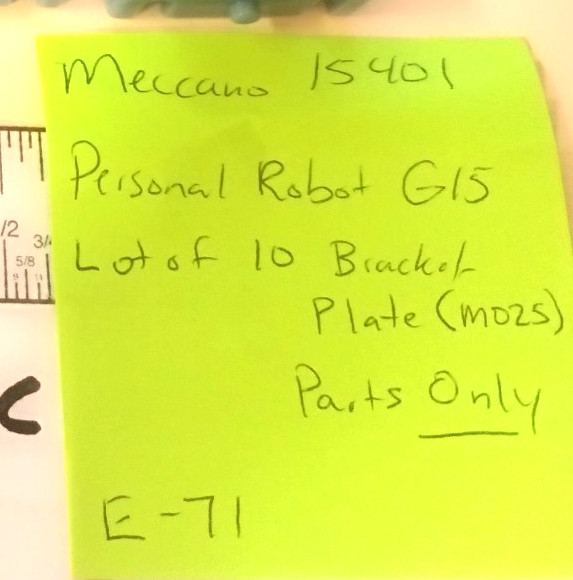 Meccano 15401
Personal Robot G15
Lot of 10 Bracket
Plate (M025)
Parts Only
E-71
/2
3/
5/8
C